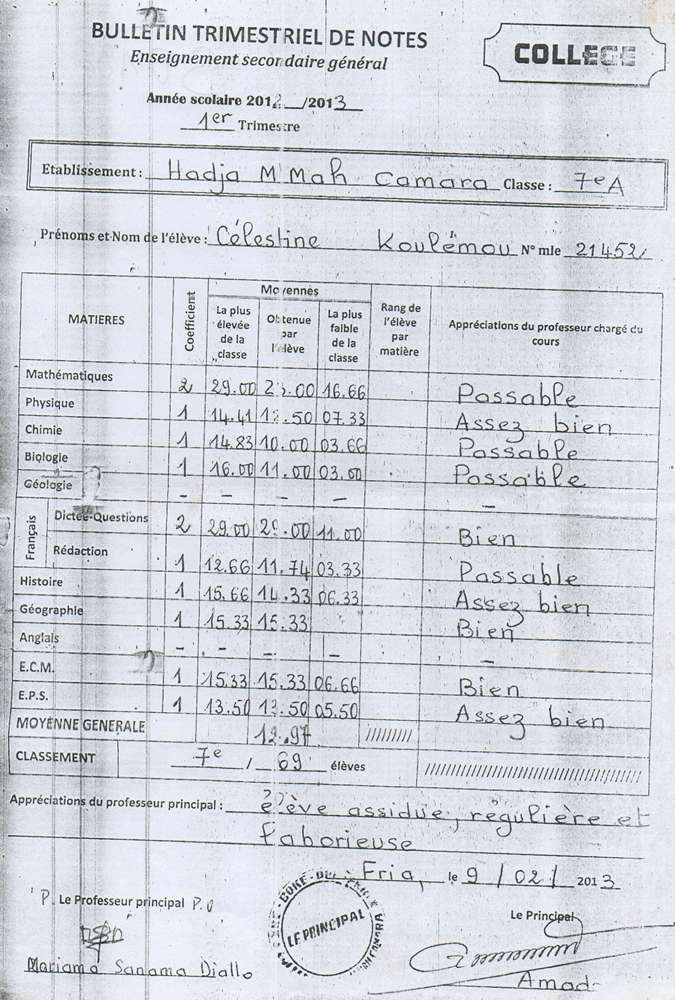 BULLETIN TRIMESTRIEL DE NOTES
COLLEGE
Enseignement secondaire général
Année scolaire 2012 /2013
1er Trimestre
Etablissement : Hadja M'Mah Camara Classe : 7e A
Prénoms et Nom de l'élève : Célestine Koulémou N° mle 21452
MATIERES Coefficient Moyennes Rang de l'élève par matière Appréciations du professeur chargé du cours
La plus élevée de la classe Obtenue par l'élève La plus faible de la classe
Mathématiques 2 29.00 .00 16.66 Passable
Physique 1 14.41 .50 07.33 Assez bien
Chimie 1 14.83 10.00 03.66 Passable
Biologie 1 16.00 11.00 03.00 Passable
Géologie – – – – –
Français
Dictée-Questions 2 29.00 29.00 11.00 Bien
Rédaction 1 12.66 11.74 03.33 Passable
Histoire 1 15.66 14.33 06.33 Assez bien
Géographie 1 15.33 15.33 Bien
Anglais – – – – –
E.C.M. 1 15.33 15.33 06.66 Bien
E.P.S. 1 13.50 13.50 05.50 Assez bien
MOYENNE GENERALE .97 /////////
CLASSEMENT 7e / 69 élèves
Appréciations du professeur principal : élève assidue, régulière et
laborieuse
Fria, le 9 / 02 / 2013
P. Le Professeur principal P.O
Le Principal
LE PRINCIPAL
Mariama Sanama Diallo
Amad